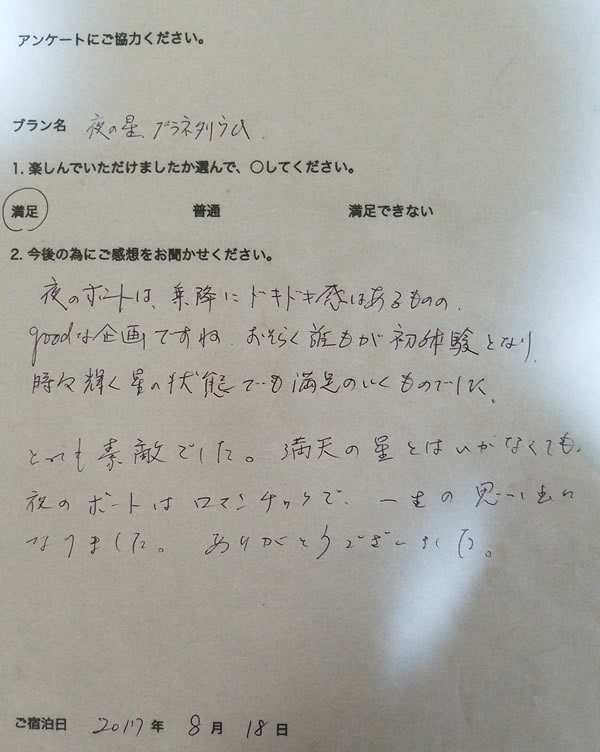 アンケートにご協力ください。
プラン名 夜の星、プラネタリウム
1. 楽しんでいただけましたか選んで、〇してください。
満足 普通 満足できない
2. 今後の為にご感想をお聞かせください。
夜のボートは、乗降にドキドキ感はあるものの、
goodな企画ですね。おそらく誰もが初体験となり、
時々輝く星の状態でも満足のいくものでした。
とっても素敵でした。満天の星とはいかなくても、
夜のボートはロマンチックで、一生の思い出に
なりました。ありがとうございました。
ご宿泊日 2017年 8月 18日